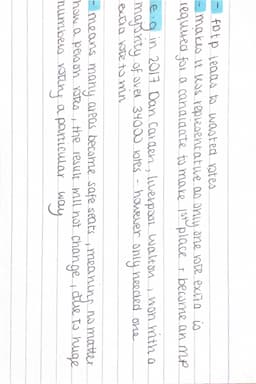 - FPTP leads to wasted votes
- makes it less representative as only one vote extra is
required for a candidate to make 1st place + become an MP
e.g in 2017 Dan Carden, liverpool walton, won with a
majority of over 34000 votes - however only needed one
extra vote to win
- means many areas become safe seats, meaning no matter
how a person votes, the result will not change, due to huge
numbers voting a particular way